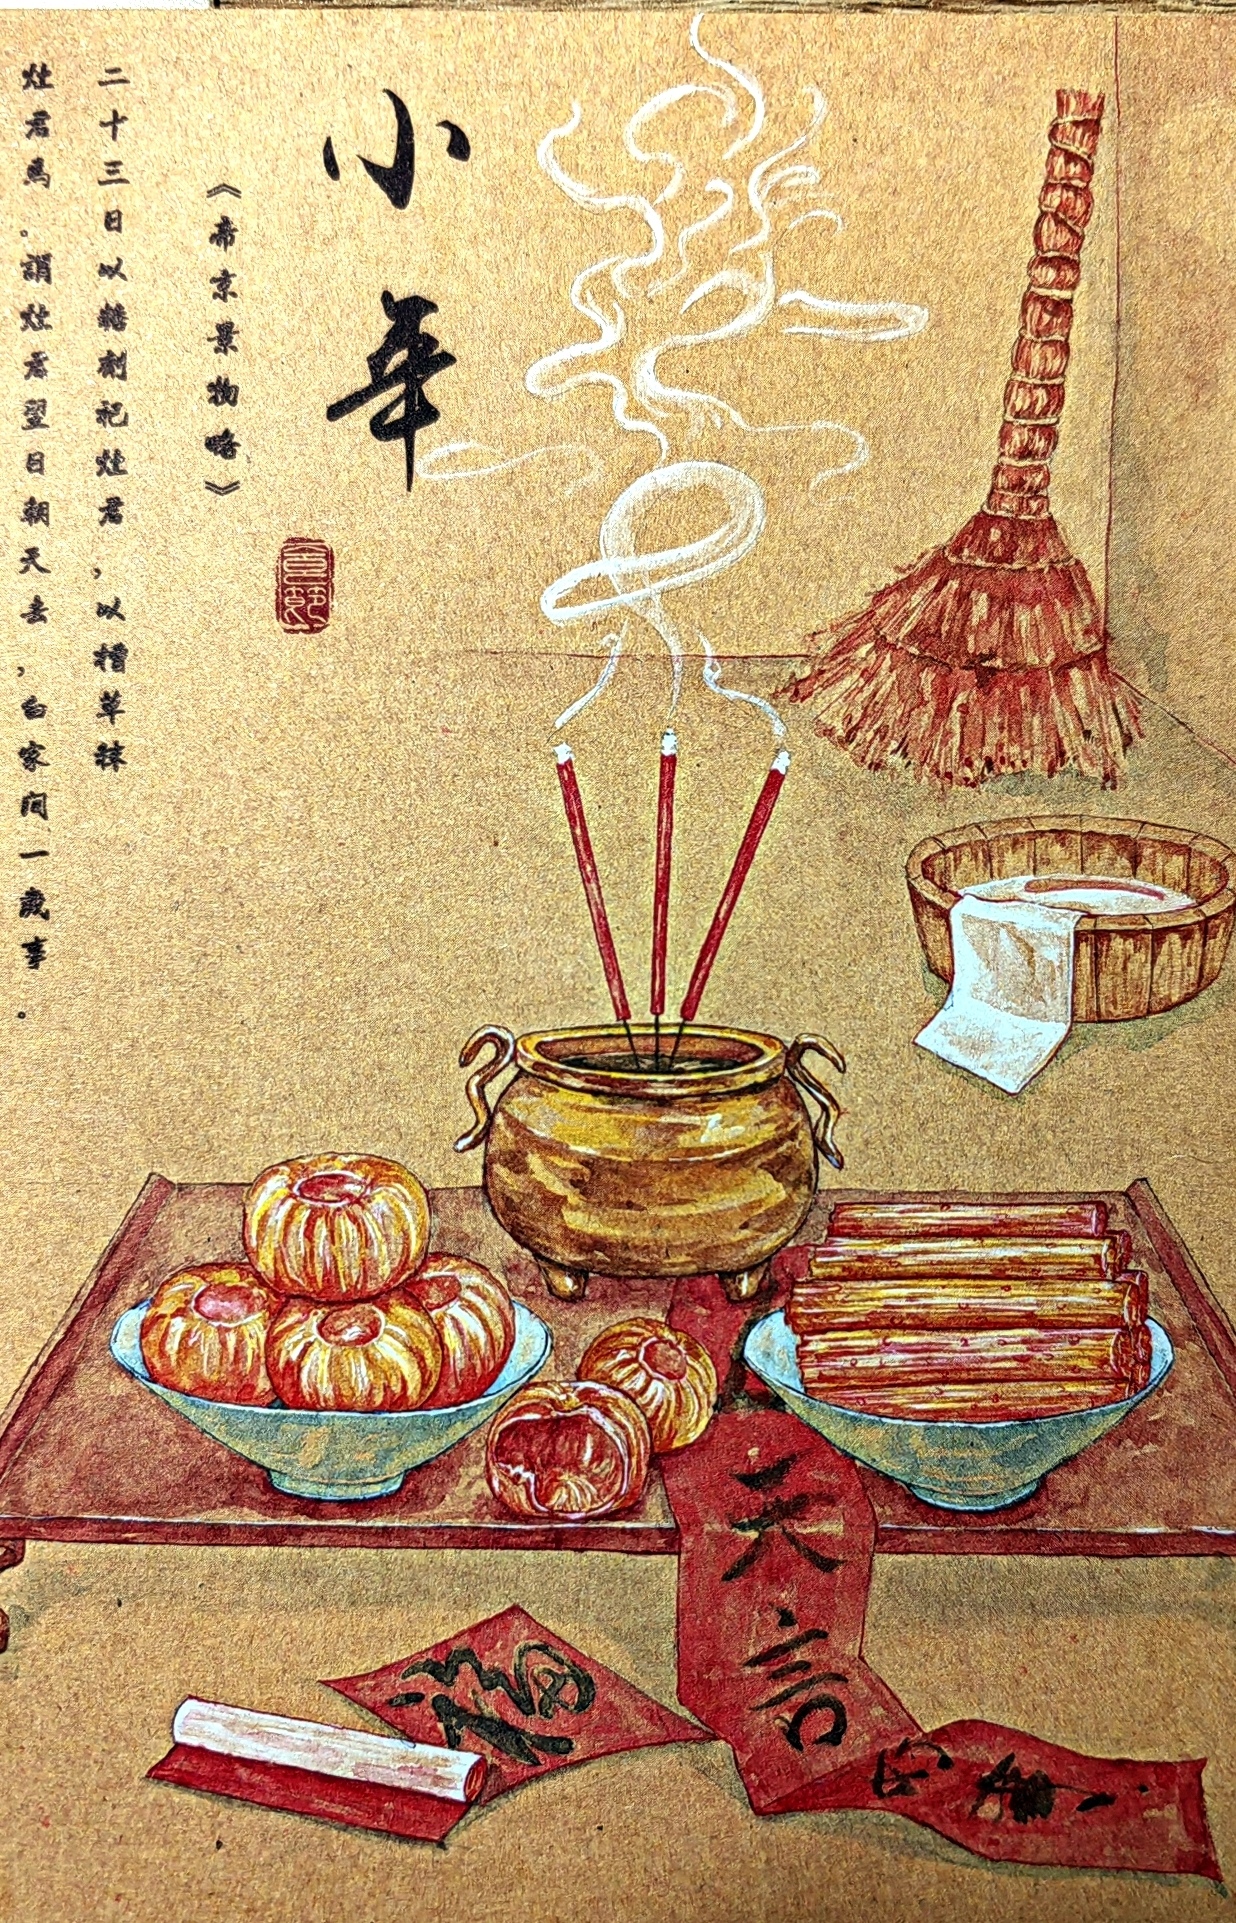 小年
《帝京景物略》
二十三日以糖剂祀灶君,以槽草秣
灶君马。谓灶君翌日朝天去,白家间一岁事。
天言
福